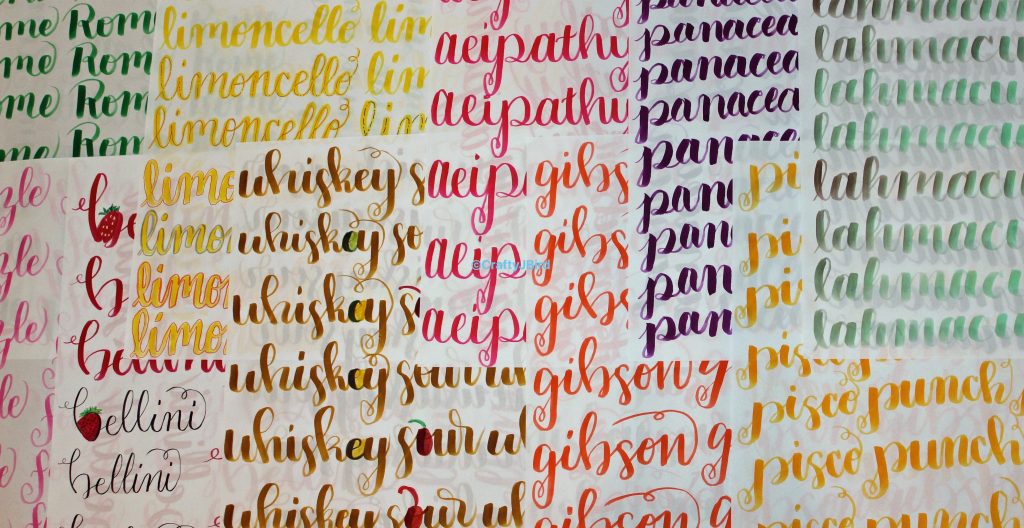 me Rom
me Rom
me Rom
me Rom
limoncello lim
limoncello lim
limoncello lim
aeipath
aeipath
panacea
panacea
panacea
panacea
pan
pan
pan
pan
pan
lahmacu
lahmacu
lahmacu
lahmacu
lahmacu
lahmacu
lahmacu
lahmacu
zle
zle
zle
be
b
bellini
bellini
bellini
limo
limo
limo
limo
whiskey s
whiskey so
whiskey s
whiskey sour w
whiskey sour w
whiskey sour w
aeip
aeip
aeip
gibs
gibs
gibs
gibson g
gibson g
gibson g
pi
pi
pi
pisco punch
pisco punch
pisco punch
©CraftyJBird